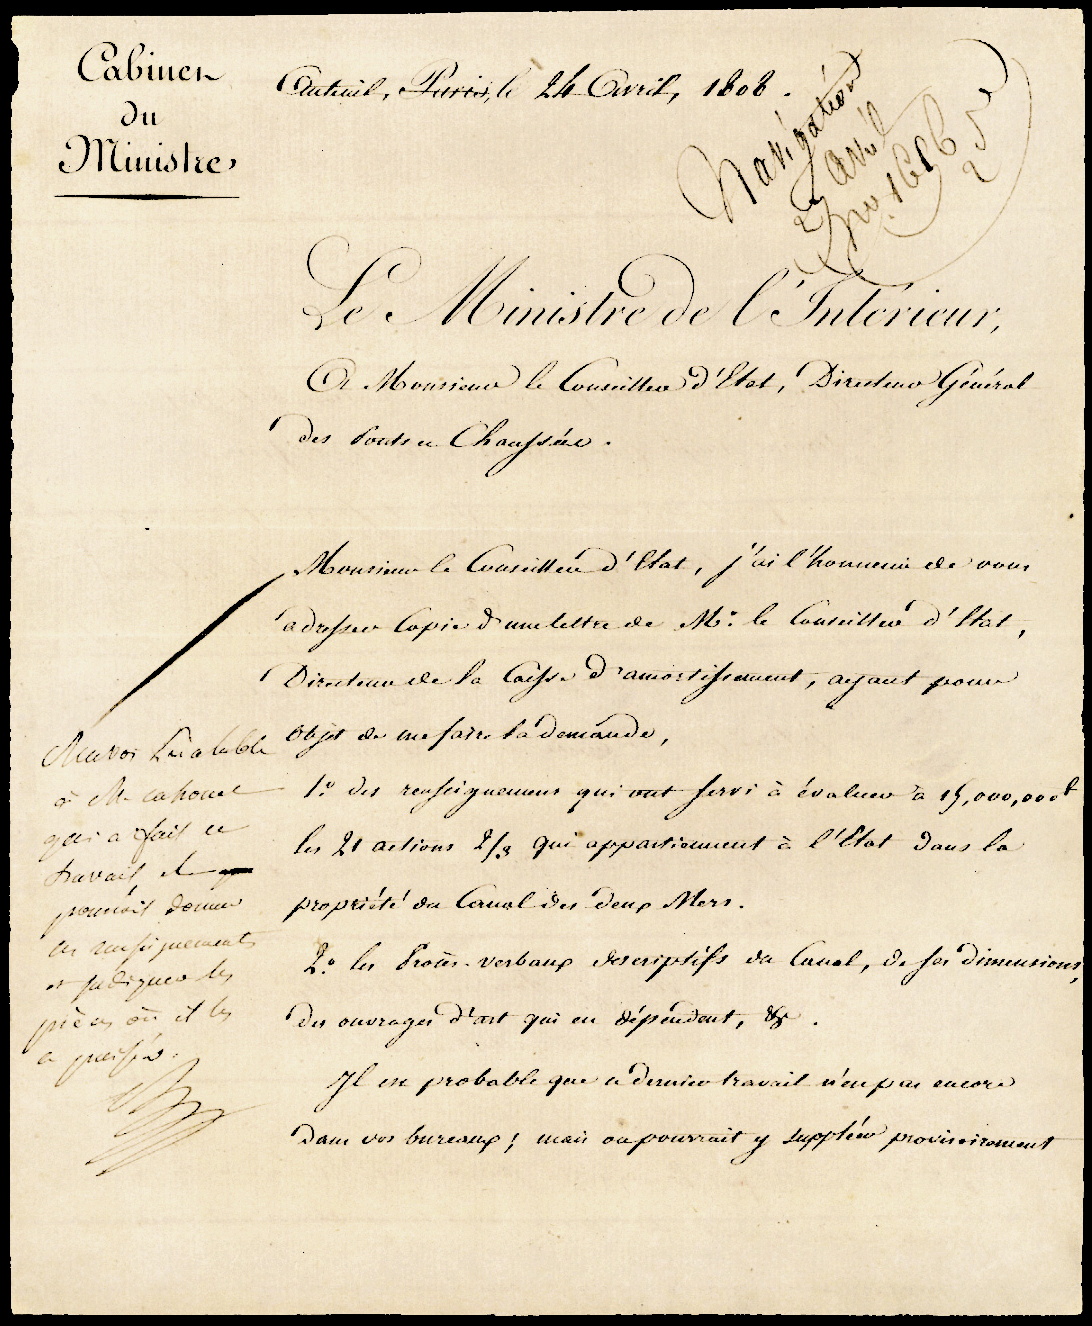 Cabinet
du
Ministre
Auteuil, Paris, le 24 Avril, 1808.
Navigation
27 avril
no. 1686
Le Ministre de l'Intérieur,
A Monsieur le Conseiller d'Etat, Directeur Général
des Ponts et Chaussées.
Monsieur le Conseiller d'Etat, j'ai l'honneur de vous
adresser Copie d'une lettre de Mr. le Conseiller d'Etat,
Directeur de la Caisse d'amortissement, ayant pour
objet de me faire la demande,
1.o des renseignemens qui ont servi à évaluer à 15,000,000f
les 21 actions 2/3 qui appartiennent à l'Etat dans la
propriété du Canal des deux Mers.
2.o les Procès-verbaux descriptifs du Canal, de ses dimensions,
des ouvrages d'art qui en dépendent, &c.
Il est probable que ce dernier travail n'est pas encore
dans vos bureaux; mais on pourrait y suppléer provisoirement
Renvoi Préalable
à Mr cahouet
qui a fait ce
travail, et
pourroit donner
les renseignements
et indiquer les
pièces où il les
a puisés.